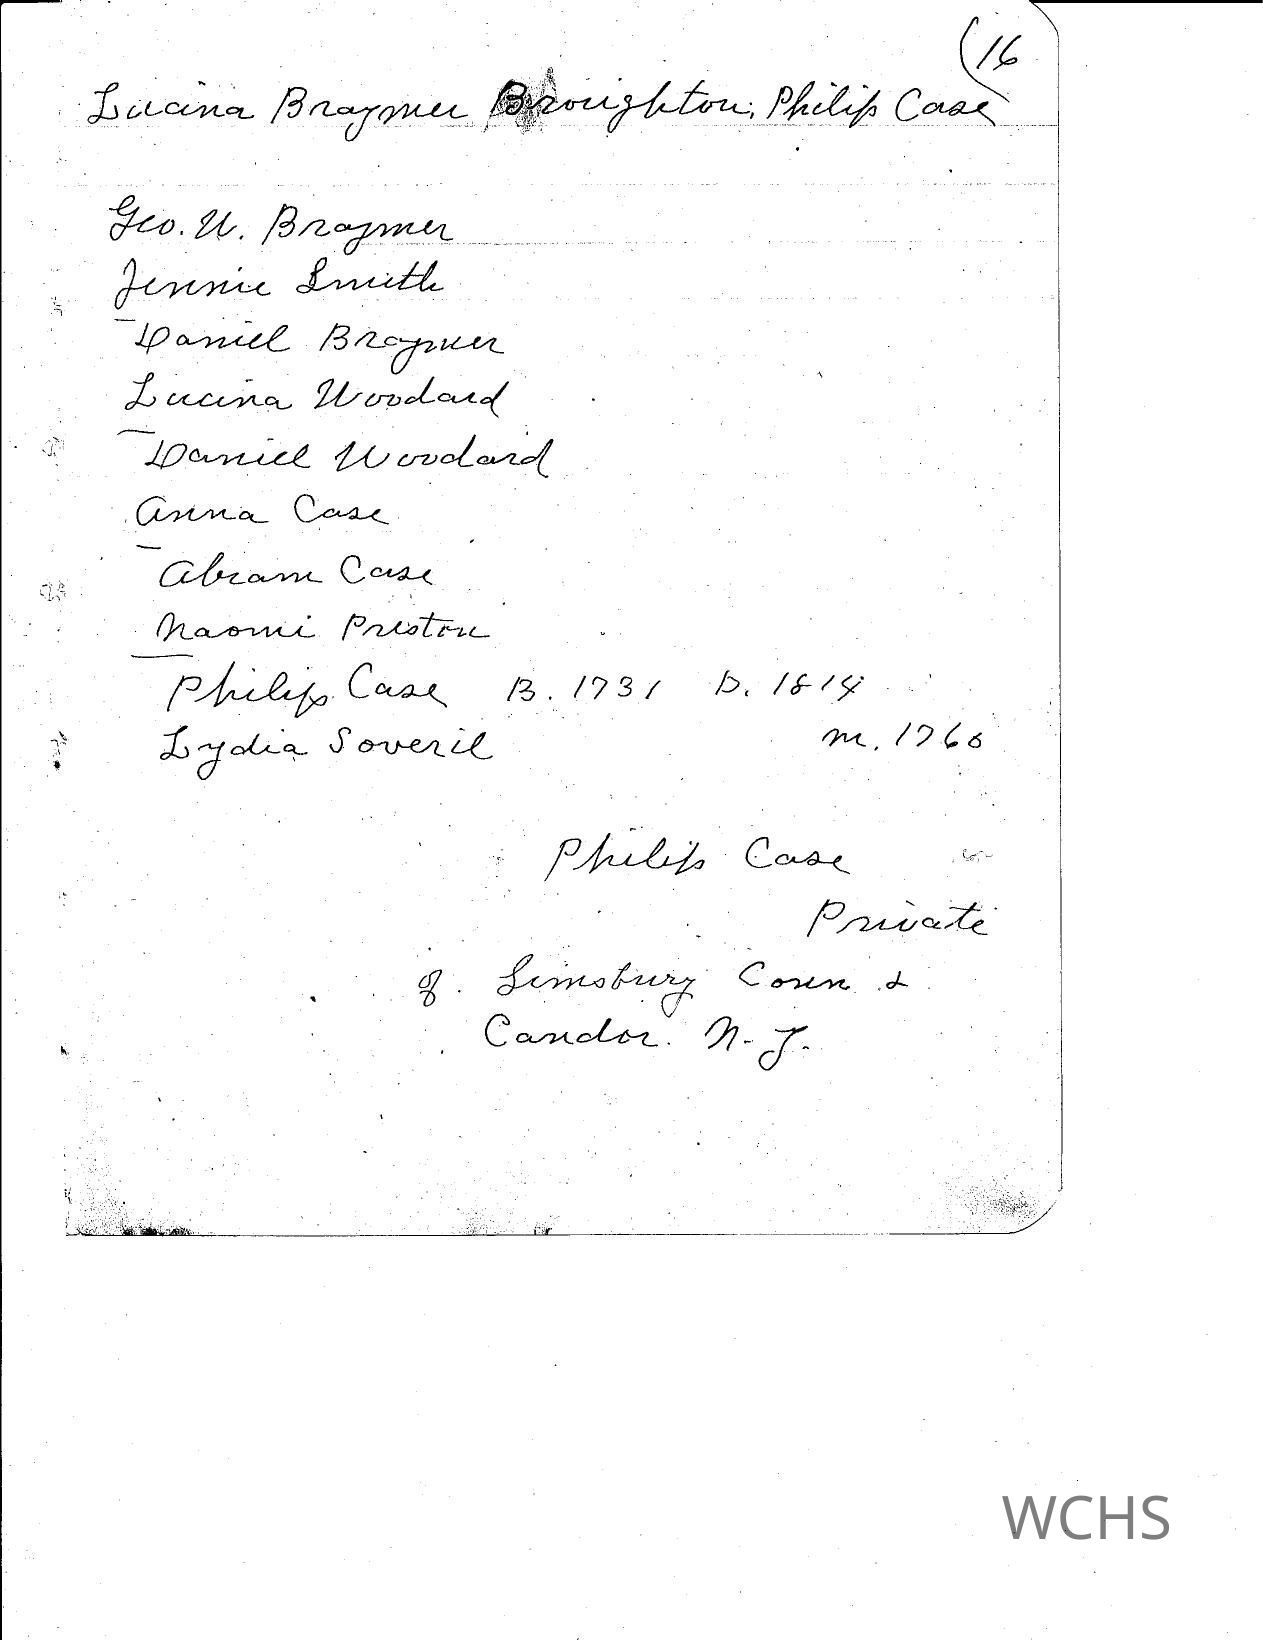 16
Lucina Braymer Broughton, Philip Case
Geo. W. Braymer
Jennie Smith
Daniel Braymer
Lucina Woodard
Daniel Woodard
Anna Case
Abram Case
Naomi Preston
Philip Case B. 1731 D. 1814
Lydia Soveril m. 1760
Philip Case
Private
of Simsbury Conn &
Candor. N. J.
WCHS